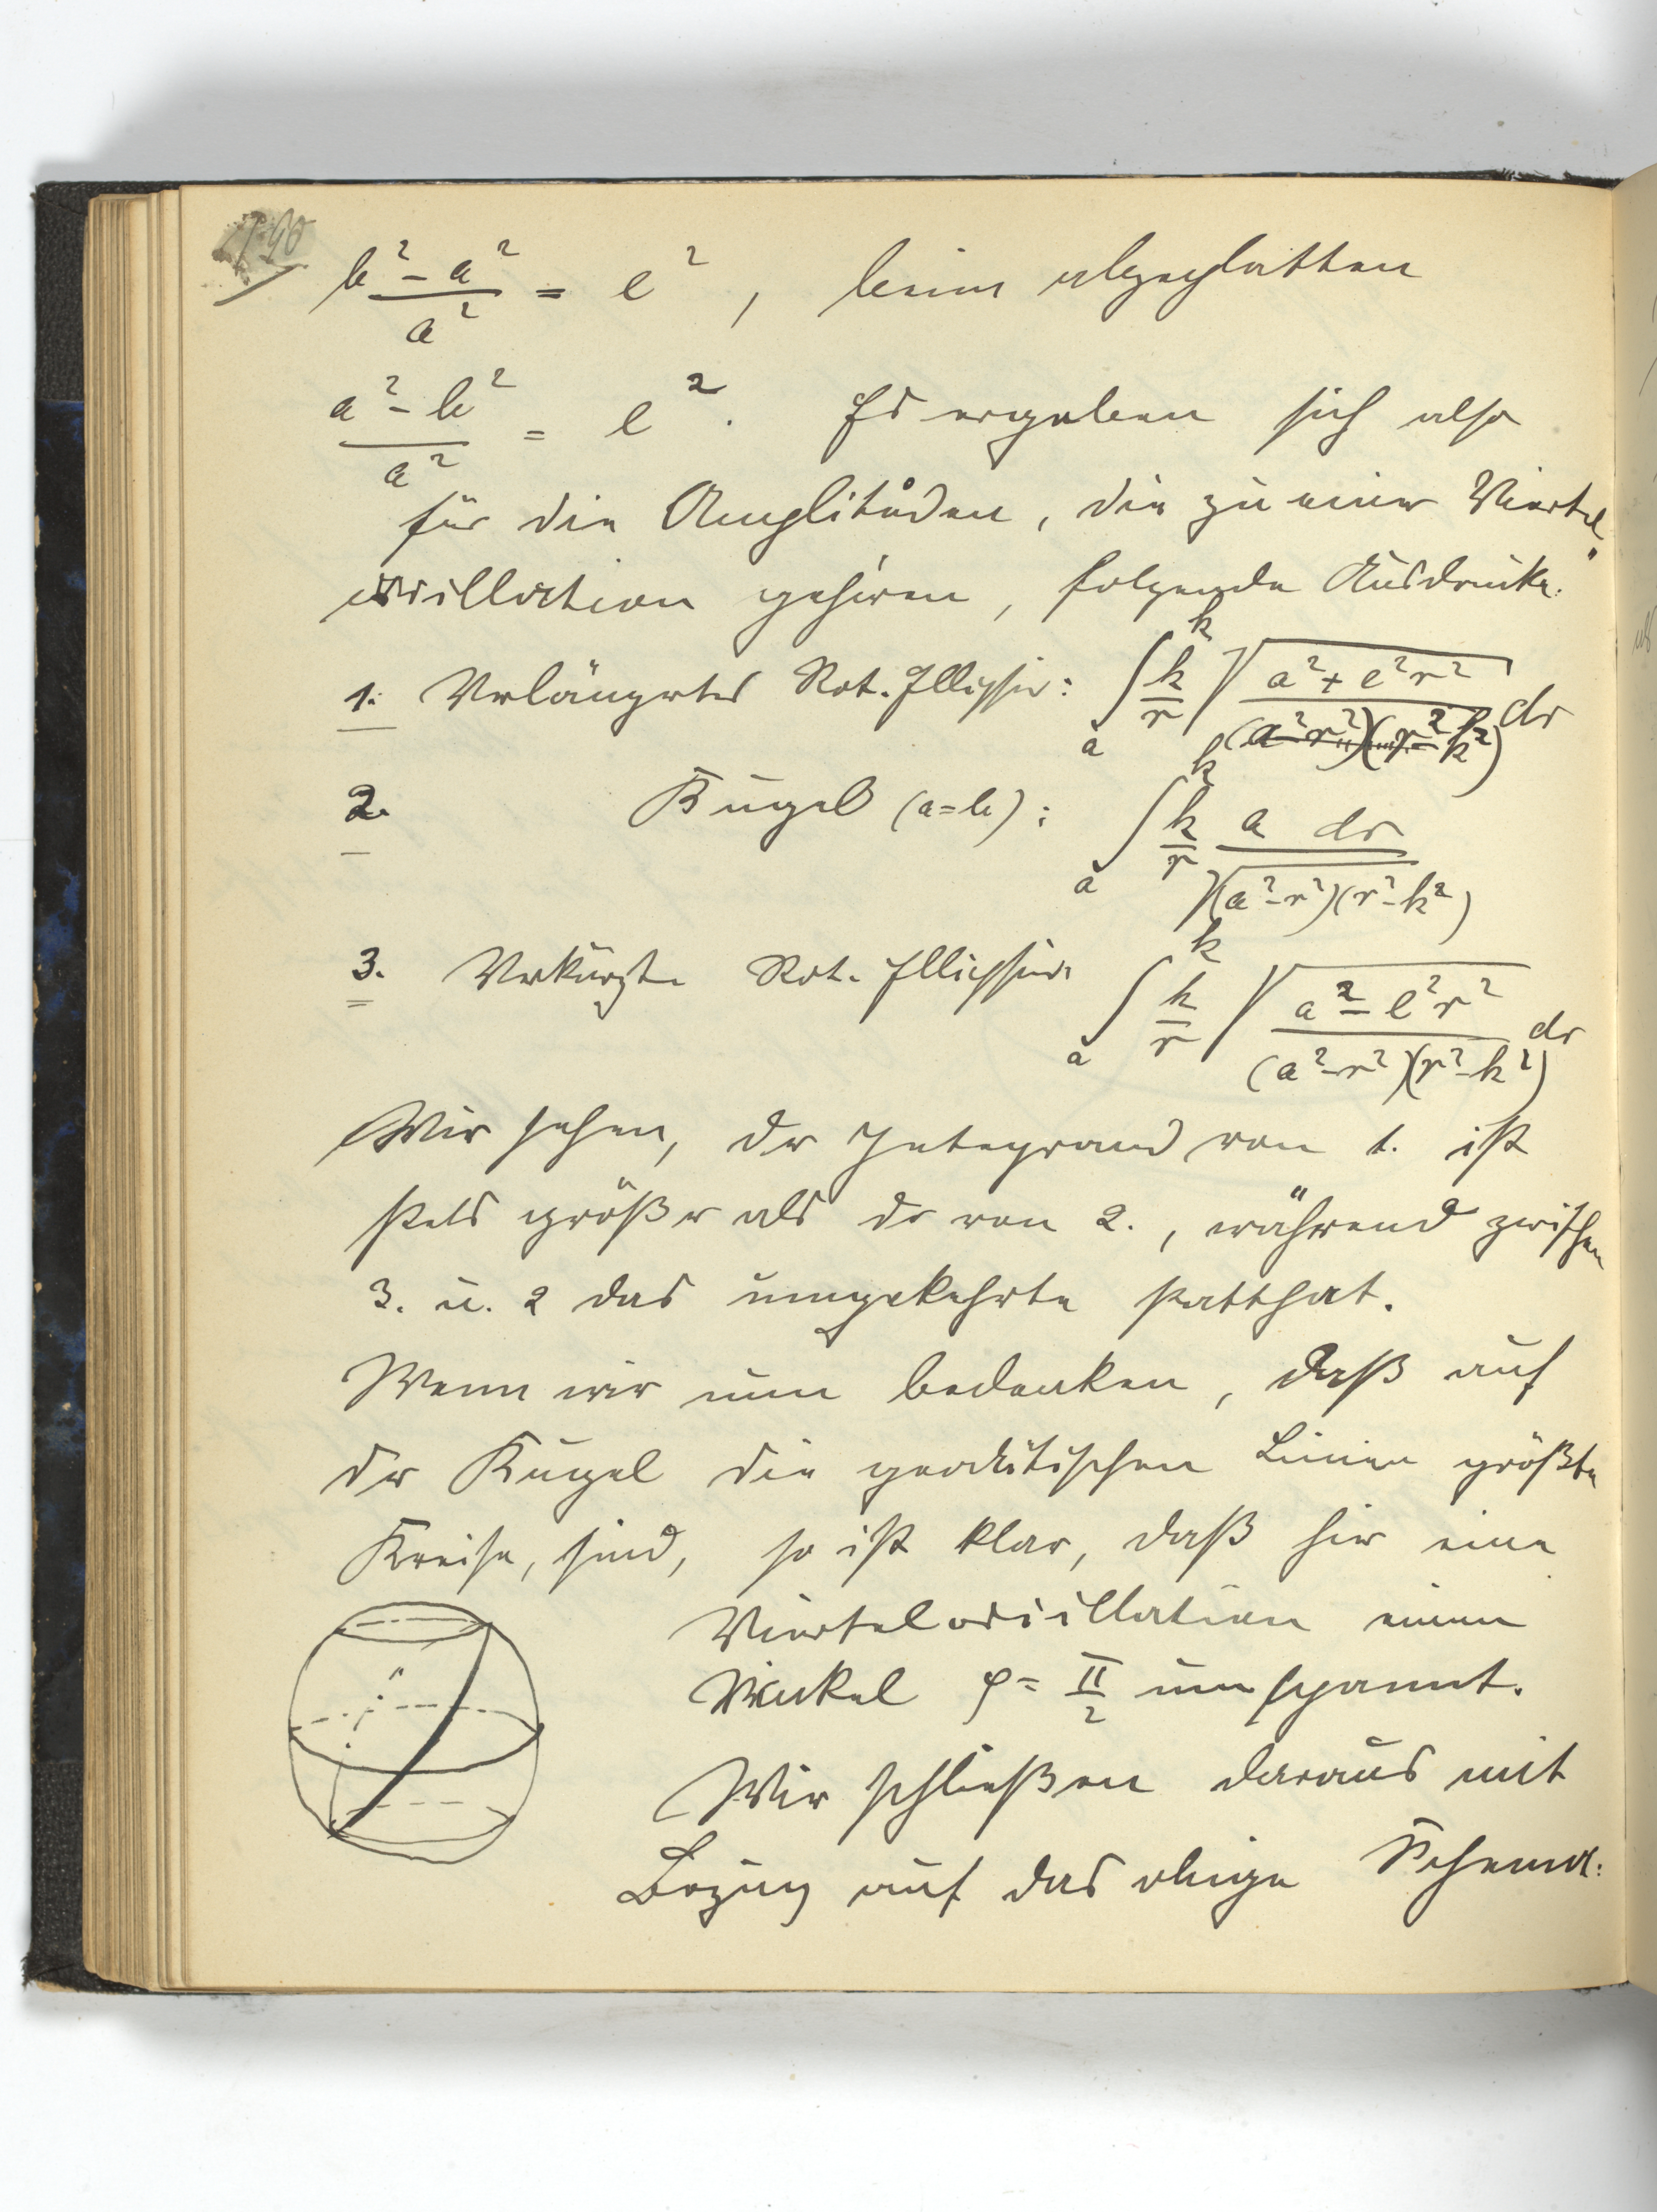 190
(b² - a²)/a² = e², beim abgeplatteten
(a² - b²)/a² = e². Es ergeben sich also
für die Amplituden, die zu einer Viertel
oscillation gehören, folgende Ausdrücke:
1. Verlängertes Rot. Ellipsoid: ∫ₐᵏ k/r √((a² + e²r²)/((a² - r²)(r² - k²))) dr
2. Kugel (a=b): ∫ₐᵏ k/r a dr/√((a² - r²)(r² - k²))
3. Verkürzte Rot. Ellipsoid ∫ₐᵏ k/r √((a² - e²r²)/((a² - r²)(r² - k²))) dr
Wir sehen, der Integrand von 1. ist
stets größer als der von 2., während zwischen
3. u. 2 das umgekehrte statthat.
Wenn wir nun bedenken, daß auf
der Kugel die geodätischen Linien größte
Kreise, sind, so ist klar, daß hier eine
Vierteloscillation einen
Winkel φ = π/2 umspannt.
Wir schließen daraus mit
Bezug auf das obige Schema: